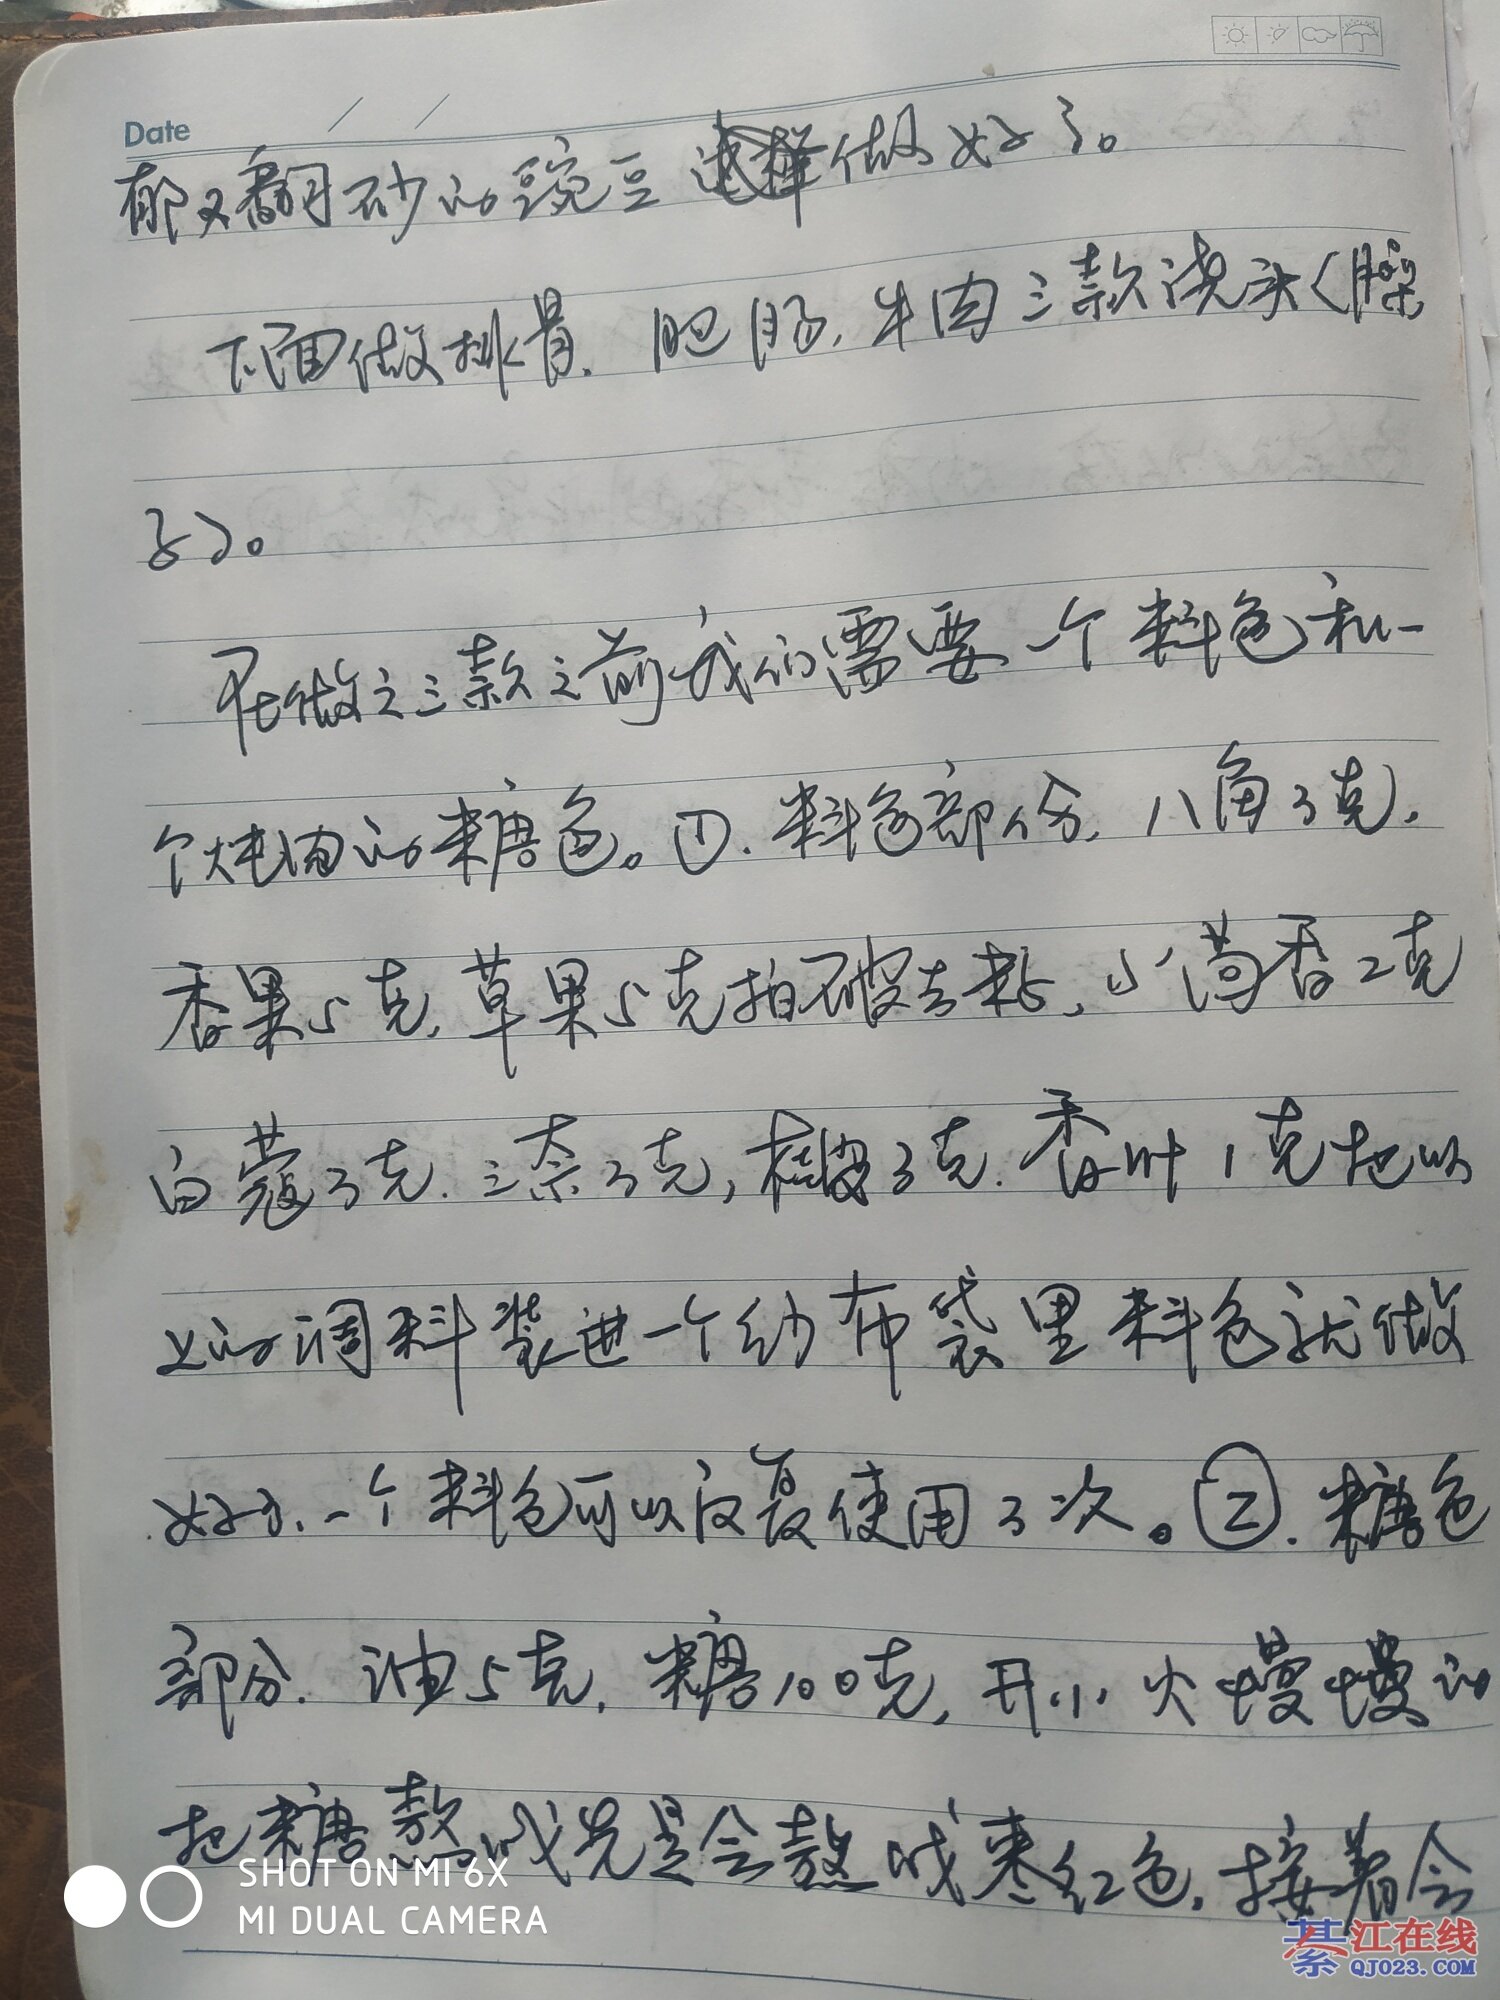 Date
郁又翻砂的豌豆选择做好了。
下面做排骨. 肥肠, 牛肉三款浇头(臊
子)。
在做之三款之前我们需要一个料包和一
个炖肉的糖色。①. 料包部份, 八角3克,
香果5克, 草果5克拍破去籽, 小茴香2克
白蔻3克. 三奈3克, 桂皮3克. 香叶1克把以
上的调料装进一个纱布袋里料包就做
好了、一个料包可以反复使用3次。②. 糖色
部分. 油5克, 糖100克, 开小火慢慢的
把糖熬成先是会熬成枣红色, 接着会
SHOT ON MI 6X
MI DUAL CAMERA
綦江在线
QJ023.COM